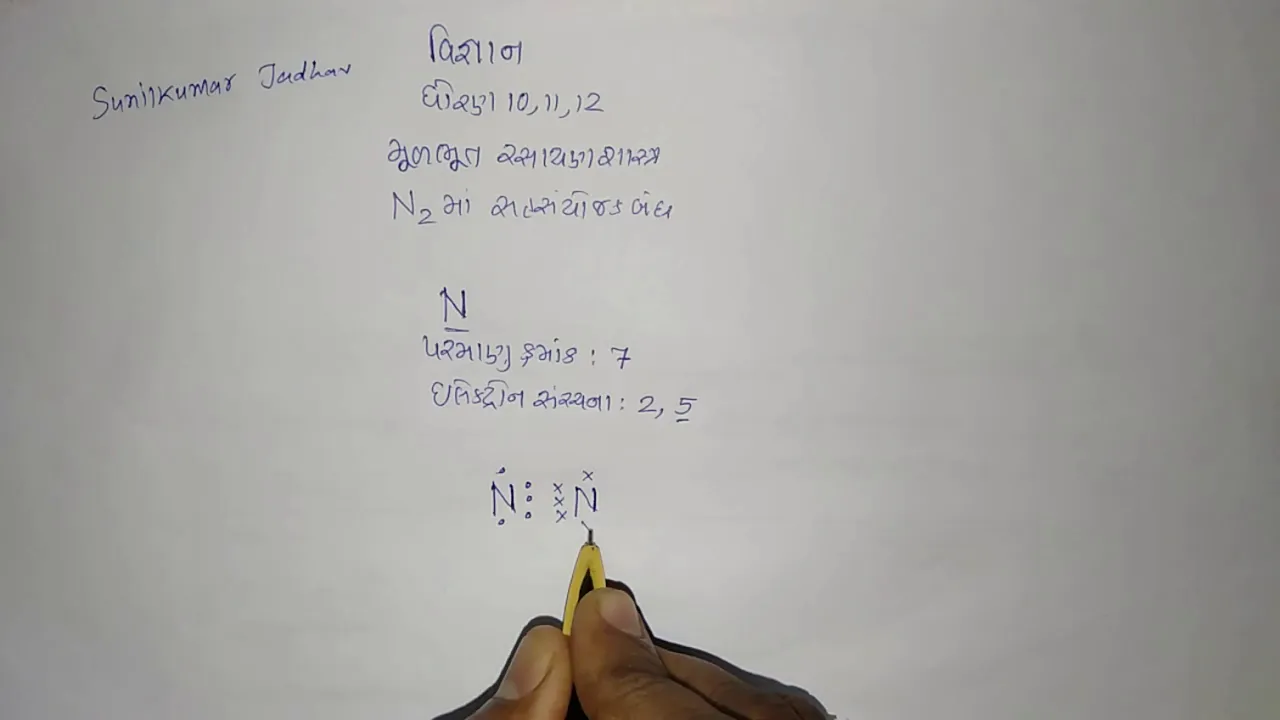 Sunilkumar Jadhav
વિજ્ઞાન
ધોરણ 10, 11, 12
મૂળભૂત રસાયણશાસ્ત્ર
N₂ માં સહસંયોજક બંધ
N
પરમાણુ ક્રમાંક : 7
ઇલેક્ટ્રોન સંરચના : 2, 5
N N